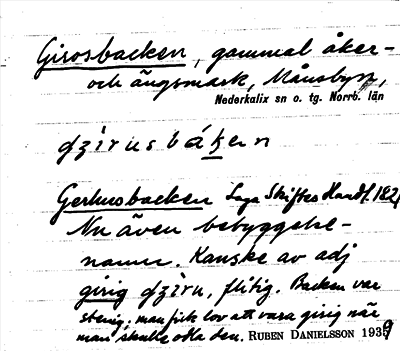 Girosbacken, gammal åker-
och ängsmark, Månsbyn,
Nederkalix sn o. tg. Norrb. län
dzìrusbák̲en
Gerhusbacken Laga Skiftes Handl. 182
Nu även bebyggelse-
namn. Kanske av adj
girig dzìru, flitig. Backen var
stenig, man fick lov att vara girig när
man skulle odla den. RUBEN DANIELSSON 1939